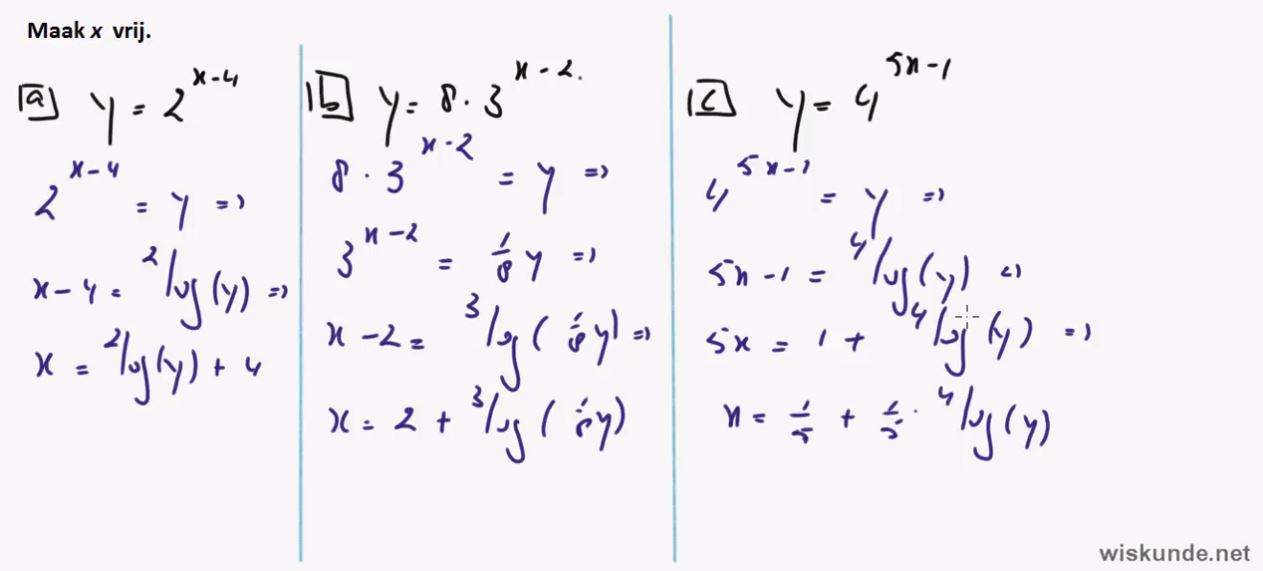 Maak x vrij.
a y = 2^(x-4)
2^(x-4) = y =>
x-4 = ²log(y) =>
x = ²log(y) + 4
b y = 8 · 3^(x-2)
8 · 3^(x-2) = y =>
3^(x-2) = 1/8 y =>
x-2 = ³log(1/8 y) =>
x = 2 + ³log(1/8 y)
c y = 4^(5x-1)
4^(5x-1) = y =>
5x-1 = ⁴log(y) =>
5x = 1 + ⁴log(y) =>
x = 1/5 + 1/5 · ⁴log(y)
wiskunde.net